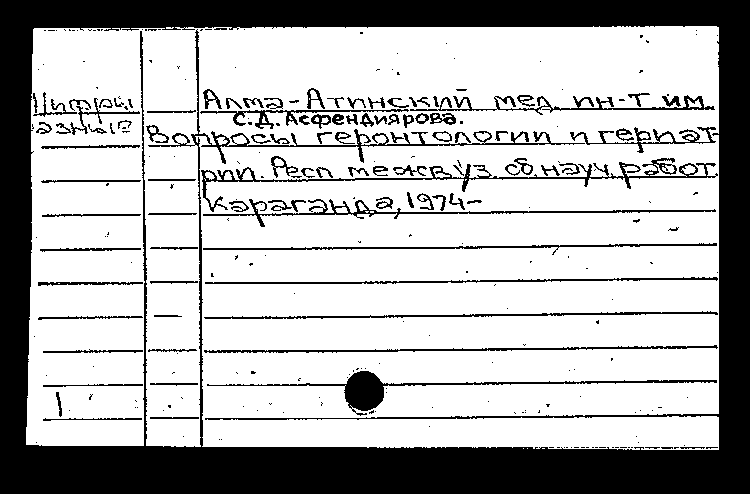 Цифры
разные
Алма-Атинский мед. ин-т им.
С.Д. Асфендиярова.
Вопросы геронтологии и гериат-
рии. Респ. межвуз. сб. науч. работ
Караганда, 1974-
1